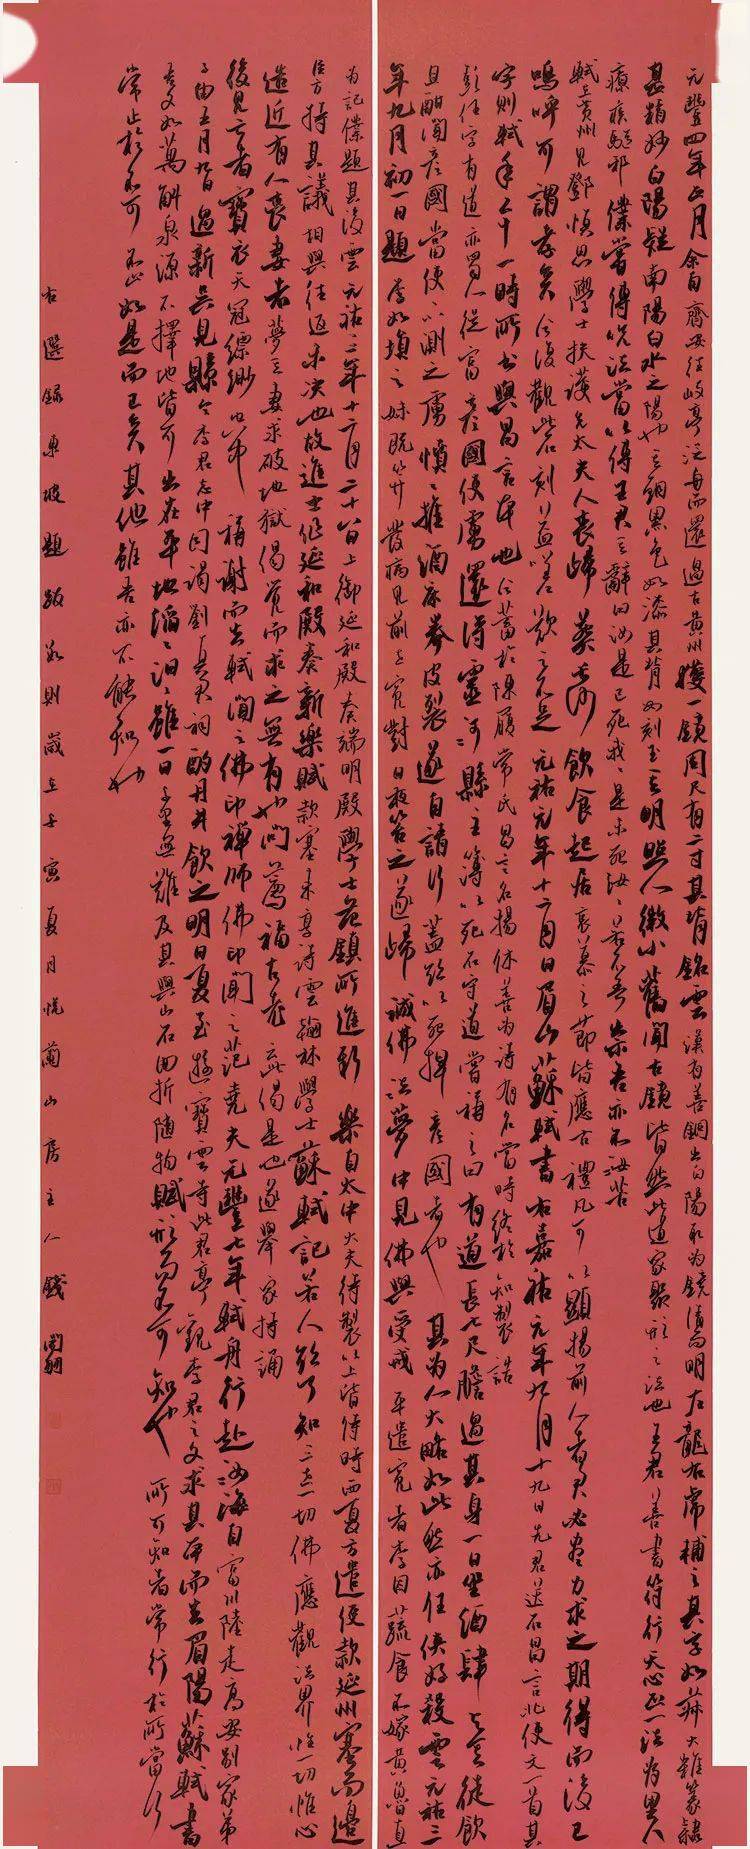 元豐四年正月余自齊安往岐亭泛舟而還過古黃州獲一鏡周尺有二寸其背銘雲漢有善銅出白陽取為鏡清而明左龍右虎輔之其字如菽大雜篆隸
甚精妙白陽疑南陽白水之陽也其銅黑色如漆其背如刻玉其明照人微小舊聞古鏡皆然此道家聚形之法也王君善書符行天心正一法為里人
療疾驅邪僕嘗傳咒法當以傳王君其辭曰汝是已死我我是未死汝汝若不吾祟吾亦不汝苦
軾在黃州見鄧慎思學士扶護先太夫人喪歸葬長沙飲食起居哀慕之節皆應古禮凡可以顯揚前人者君必盡力求之期得而後已
嗚呼可謂孝矣今復觀此石刻益嗟歎之不足元祐元年十二月日眉山蘇軾書右嘉祐元年九月十九日先君送石昌言北使文一首其
字則軾年二十一時所書與昌言本也今蓄於陳履常氏昌言名揚休善為詩有名當時終於知製誥
彭任字有道亦蜀人從富彥國使虜還得靈河縣主簿以死石守道嘗稱之曰有道長七尺膽過其身一日坐酒肆與其徒飲
且酣聞彥國當使不測之虜憤憤推酒床拳皮裂遂自請行蓋欲以死捍彥國者也其為人大略如此然亦任俠好殺雲元祐三
年九月初一日題李如塤之妹既笄發病見前世冤對日夜笞之遂歸誠佛法夢中見佛與受戒平遣冤者李因蔬食不嫁黃魯直
為記僕題其後雲元祐三年十二月二十八日上御延和殿奏端明殿學士范鎮所進新樂自太中大夫待製以上皆侍時西夏方遣使款延州塞而邊
臣方持其議相與往返未決也故進士作延和殿奏新樂賦款塞來享詩雲翰林學士蘇軾記若人欲了知三世一切佛應觀法界性一切惟心
造近有人喪妻者夢其妻求破地獄偈覺而求之無有也問薦福古老云此偈是也遂舉家持誦
後見亡者寶衣天冠縹緲空中稱謝而去軾聞之佛印禪師佛印聞之范堯夫元豐七年軾舟行赴汝海自富川陸走高安別家弟
子由五月九日過新吳見縣令李君志中同謁劉真君祠酌丹井飲之明日夏至遊寶雲寺此君亭觀李君之文求其本而去眉陽蘇軾書
吾文如萬斛泉源不擇地皆可出在平地滔滔汩汩雖一日千里無難及其與山石曲折隨物賦形而不可知也所可知者常行於所當行
常止於不可不止如是而已矣其他雖吾亦不能知也
右選錄東坡題跋數則歲在壬寅夏月悅蘭山房主人錢